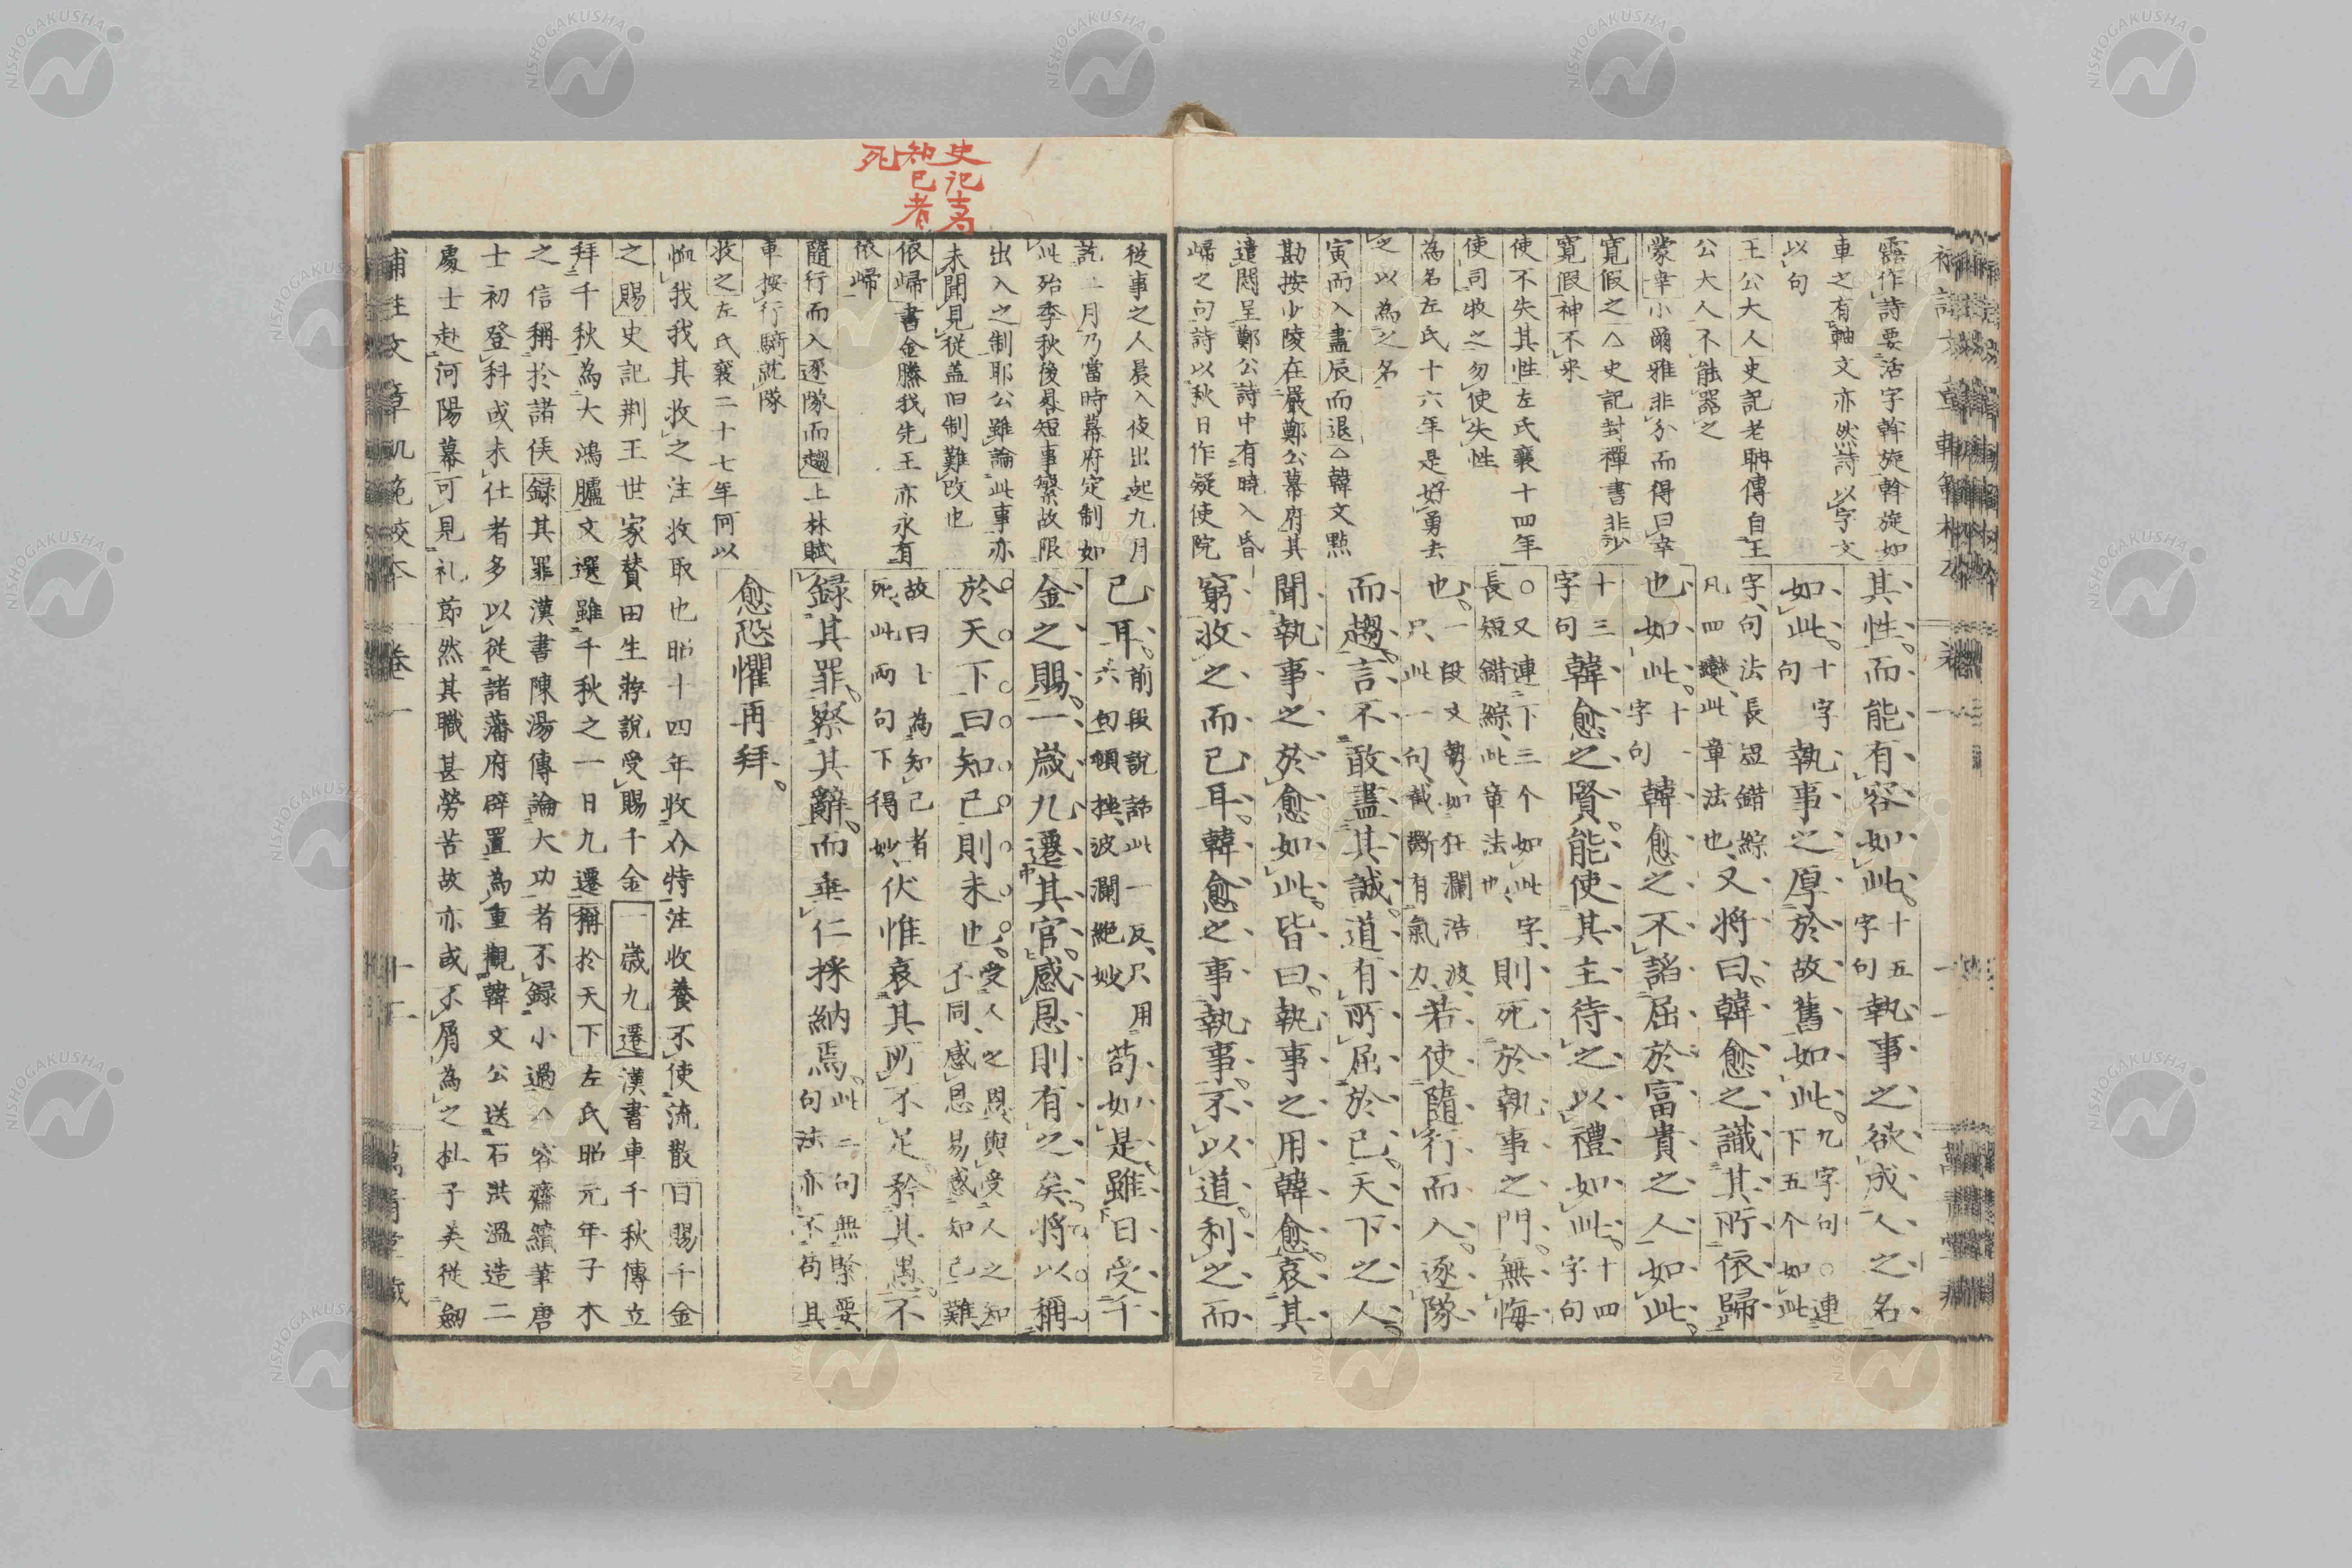 露作詩要活字斡旋斡旋如
車之有軸文亦然詩以字文
以句
王公大人史記老聃傳自王
公大人不能器之
蒙幸小爾雅非分而得曰幸
寬假之△史記封禪書非少
寬假神不來
使不失其性左氏襄十四年
使司牧之勿使失性
為名左氏十六年是好勇去
之以為之名
寅而入盡辰而退△韓文點
勘按少陵在嚴鄭公幕府其
遣悶呈鄭公詩中有曉入昏
歸之句詩以秋日作疑使院
其性而能有容如此十五字句執事之欲成人之名
如此十字句執事之厚於故舊如此九字句○連下五个如此
字句法長短錯綜凡四變此章法也又將曰韓愈之識其所依歸
也如此十一字句韓愈之不諂屈於富貴之人如此
十三字句韓愈之賢能使其主待之以禮如此十四字句
○又連下三个如此字長短錯綜此章法也則死於執事之門無悔
也一段文勢如狂瀾浩波只此一句截斷有氣力若使隨行而入逐隊
而趨言不敢盡其誠道有所屈於己天下之人
聞執事之於愈如此皆曰執事之用韓愈哀其
窮收之而已耳韓愈之事執事不以道利之而
史記士為
知己者
死
從事之人晨入夜出起九月
訖二月乃當時幕府定制如
此殆季秋後晷短事繁故限
出入之制耶公雖論此事亦
未聞見從蓋旧制難改也
依歸書金縢我先王亦永有
依歸
隨行而入逐隊而趨上林賦
車按行騎就隊
收之左氏襄二十七年何以
已耳前段說話此一反只用六句頓挫波瀾絕妙苟如是雖日受千
金之賜一歲九遷其官感恩則有之矣將以稱
於天下曰知己則未也受人之恩與受人之知不同感恩易感知己難
故曰士為知己者死此兩句下得妙伏惟哀其所不足矜其愚不
録其罪察其辭而垂仁採納焉此二句無緊要句法亦不苟且
愈恐懼再拜
恤我我其收之注收取也昭十四年收介特注收養不使流散日賜千金
之賜史記荊王世家贊田生游說受賜千金一歲九遷漢書車千秋傳立
拜千秋為大鴻臚文選雖千秋之一日九遷稱於天下左氏昭元年子木
之信稱於諸侯録其罪漢書陳湯傳論大功者不録小過△容齋續筆唐
士初登科或未仕者多以從諸藩府辟置為重觀韓文公送石洪溫造二
處士赴河陽幕可見礼節然其職甚勞苦故亦或不屑為之杜子美從劍
補註文章軌範校本 卷一 十一
NISHOGAKUSHA